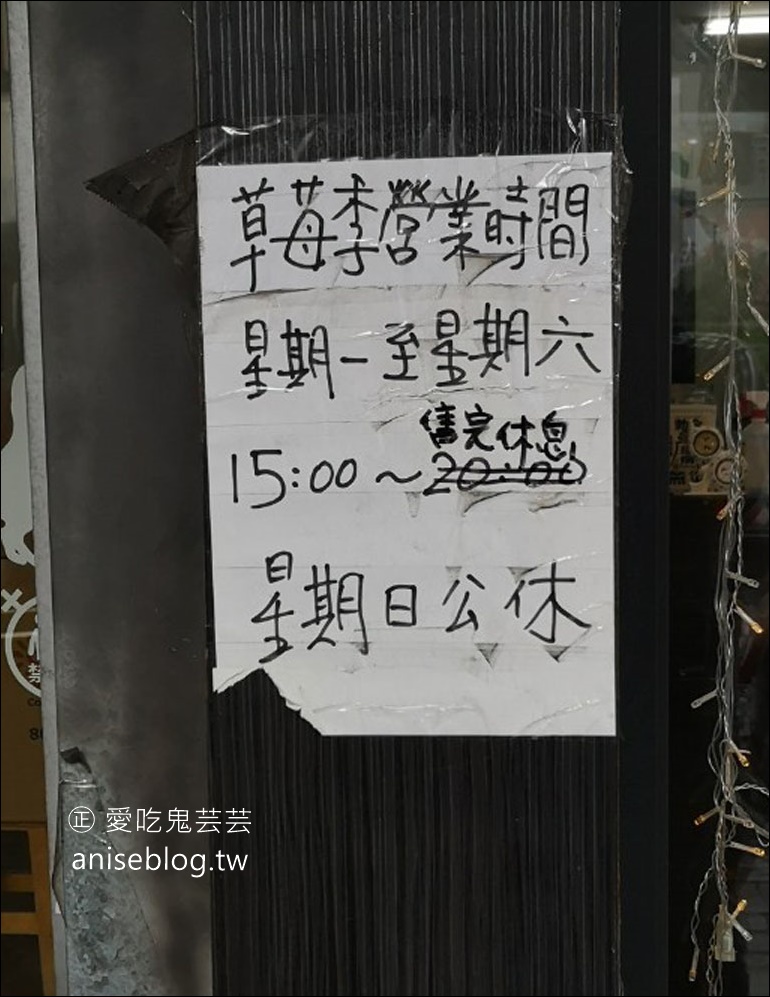 草莓季營業時間
星期一至星期六
售完休息
15:00～20:00
星期日公休
禁
㊣ 愛吃鬼芸芸
aniseblog.tw